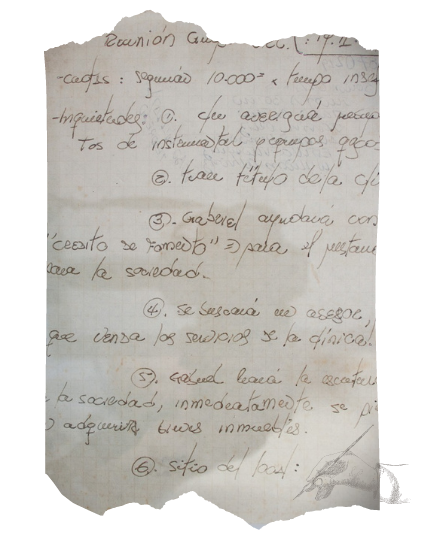 Reunión
-cuotas: seguirán 10.000= x tiempo
-Inquietudes: ①. c/u averiguará
tos de instrumental y equipos
②. traer título de la
③. Gabriel ayudará con
"credito de Fomento" => para el
para la sociedad.
④. se buscará un asesor,
que venda los servicios de la clínica.
⑤. Gabriel hará la escritura
la sociedad, inmediatamente se
adquirir bienes inmuebles.
⑥. sitio del local: